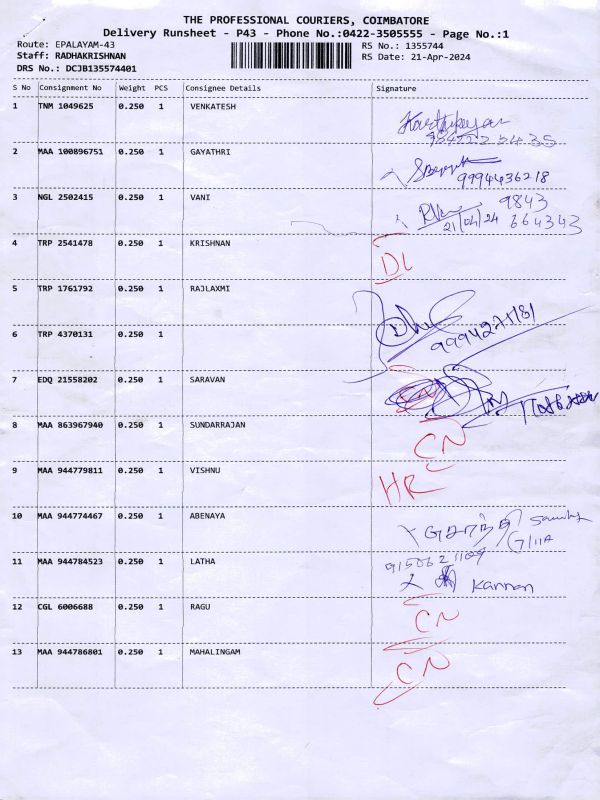 THE PROFESSIONAL COURIERS, COIMBATORE
Delivery Runsheet - P43 - Phone No.:0422-3505555 - Page No.:1
Route: EPALAYAM-43 RS No.: 1355744
Staff: RADHAKRISHNAN RS Date: 21-Apr-2024
DRS No.: DCJB135574401
S No Consignment No Weight PCS Consignee Details Signature
1 TNM 1049625 0.250 1 VENKATESH
2 MAA 100896751 0.250 1 GAYATHRI
9994436218
3 NGL 2502415 0.250 1 VANI 9843
21/04/24 664343
4 TRP 2541478 0.250 1 KRISHNAN
DL
5 TRP 1761792 0.250 1 RAJLAXMI
6 TRP 4370131 0.250 1
7 EDQ 21558202 0.250 1 SARAVAN
8 MAA 863967940 0.250 1 SUNDARRAJAN
CN
9 MAA 944779811 0.250 1 VISHNU
HR
10 MAA 944774467 0.250 1 ABENAYA
11 MAA 944784523 0.250 1 LATHA
Kannan
12 CGL 6006688 0.250 1 RAGU
CN
13 MAA 944786801 0.250 1 MAHALINGAM
CN